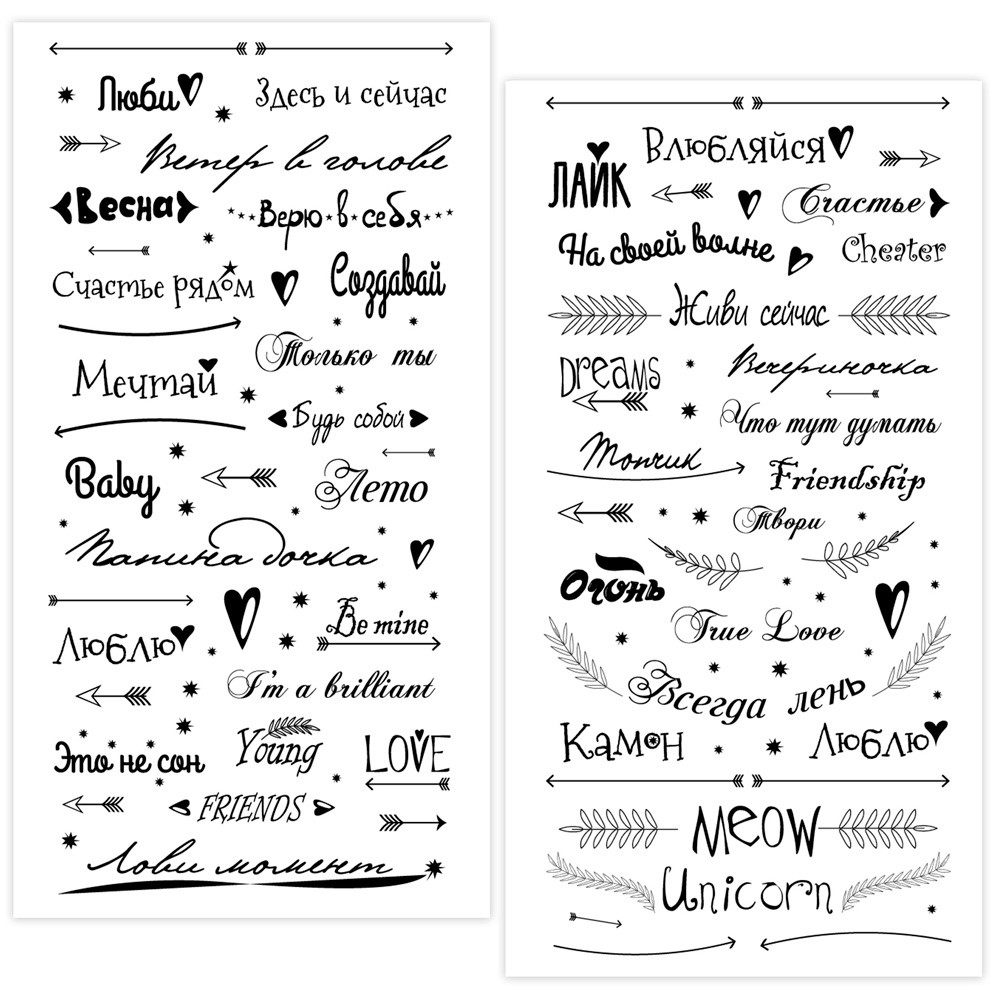 Люби
Здесь и сейчас
Ветер в голове
Весна
Верю в себя
Счастье рядом
Создавай
Только ты
Мечтай
Будь собой
Baby
Лето
Папина дочка
Люблю
Be mine
I'm a brilliant
Это не сон
Young
LOVE
FRIENDS
Лови момент
Влюбляйся
ЛАЙК
Счастье
На своей волне
Cheater
Живи сейчас
Dreams
Вечериночка
Что тут думать
Топчик
Friendship
Твори
Огонь
True Love
Всегда лень
Камон
Люблю
Meow
Unicorn